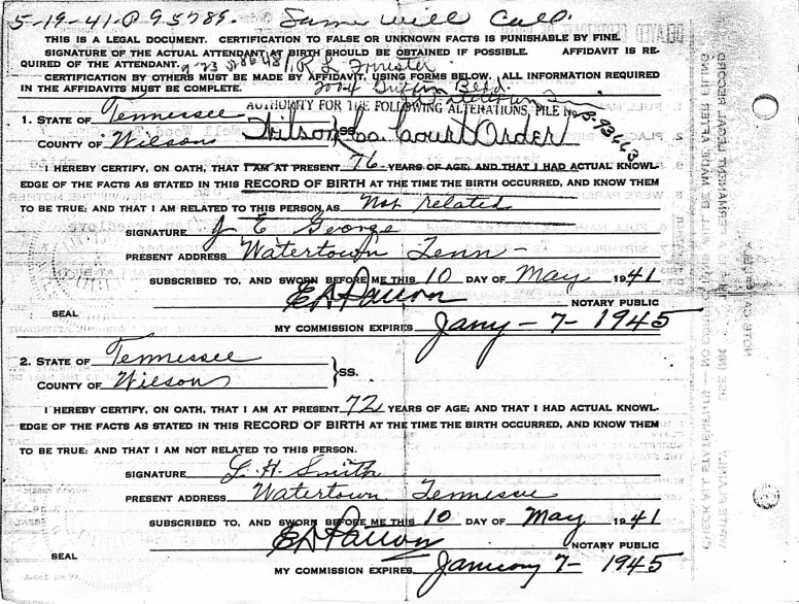 5-19-41-P 95789. Same will Call.
THIS IS A LEGAL DOCUMENT. CERTIFICATION TO FALSE OR UNKNOWN FACTS IS PUNISHABLE BY FINE.
SIGNATURE OF THE ACTUAL ATTENDANT AT BIRTH SHOULD BE OBTAINED IF POSSIBLE. AFFIDAVIT IS RE-
QUIRED OF THE ATTENDANT. R L Forrister
CERTIFICATION BY OTHERS MUST BE MADE BY AFFIDAVIT, USING FORMS BELOW. ALL INFORMATION REQUIRED
IN THE AFFIDAVITS MUST BE COMPLETE.
AUTHORITY FOR THE FOLLOWING ALTERATIONS, FILE NO
1. STATE OF Tennessee
COUNTY OF Wilson SS. Wilson Co. Court Order
I HEREBY CERTIFY, ON OATH, THAT I AM AT PRESENT 76 YEARS OF AGE; AND THAT I HAD ACTUAL KNOWL-
EDGE OF THE FACTS AS STATED IN THIS RECORD OF BIRTH AT THE TIME THE BIRTH OCCURRED, AND KNOW THEM
TO BE TRUE; AND THAT I AM RELATED TO THIS PERSON AS Not related
SIGNATURE J E George
PRESENT ADDRESS Watertown Tenn-
SUBSCRIBED TO, AND SWORN BEFORE ME THIS 10 DAY OF May 1941
NOTARY PUBLIC
SEAL
MY COMMISSION EXPIRES Jany-7-1945
2. STATE OF Tennessee
COUNTY OF Wilson SS.
I HEREBY CERTIFY, ON OATH, THAT I AM AT PRESENT 72 YEARS OF AGE; AND THAT I HAD ACTUAL KNOWL-
EDGE OF THE FACTS AS STATED IN THIS RECORD OF BIRTH AT THE TIME THE BIRTH OCCURRED, AND KNOW THEM
TO BE TRUE; AND THAT I AM NOT RELATED TO THIS PERSON.
SIGNATURE L. H. Smith
PRESENT ADDRESS Watertown Tennessee
SUBSCRIBED TO, AND SWORN BEFORE ME THIS 10 DAY OF May 1941
NOTARY PUBLIC
SEAL
MY COMMISSION EXPIRES January 7-1945